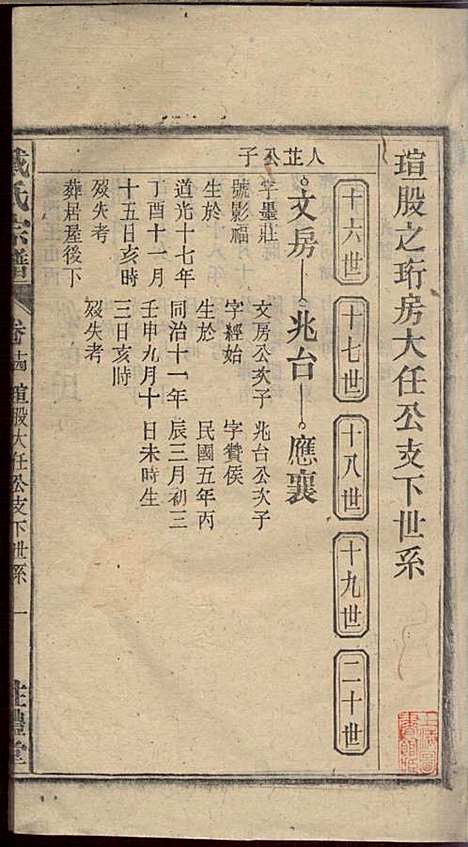 瑄股之珩房大任公支下世系
十六世
十七世
十八世
十九世
二十世
人芷公子
文房
兆台
應襄
字墨莊
號影福
生於
道光十七年
丁酉十一月
十五日亥時
歿失考
葬居屋後下
文房公次子
字經始
生於
同治十一年
壬申九月十
三日亥時
歿失考
兆台公次子
字贊侯
民國五年丙
辰三月初三
日未時生
戴氏宗譜
卷十四
瑄股大任公支下世系
一